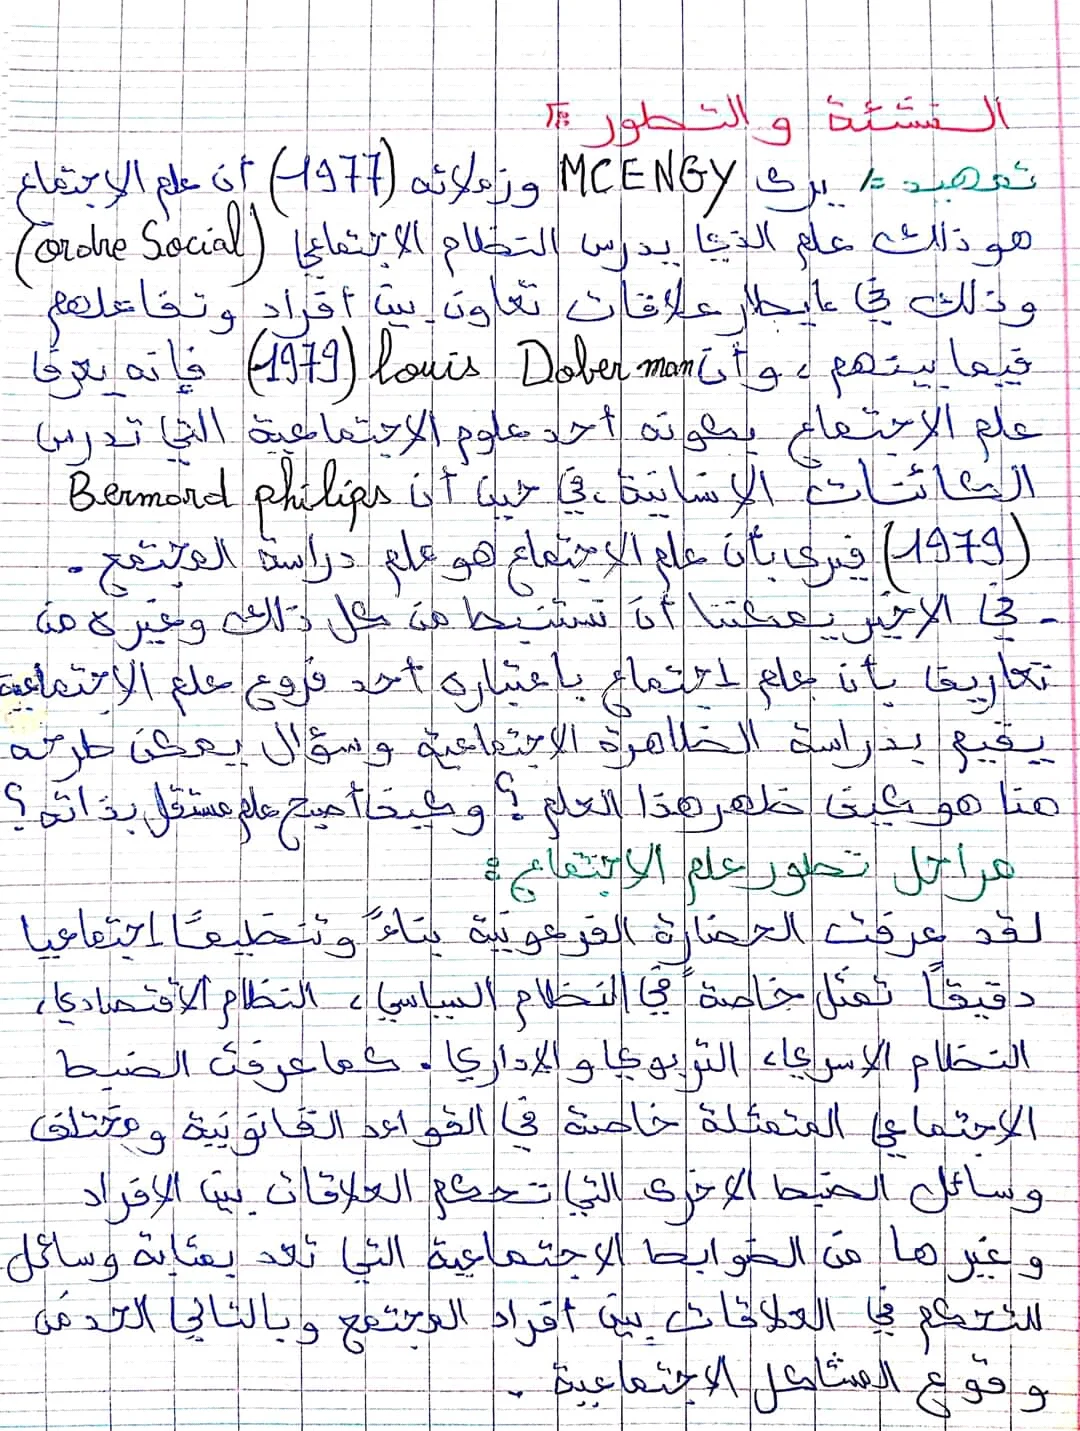 النشئة والتطور :
تمهيد : يرى MCENGY وزملائه (1977) أن علم الاجتماع
هو ذلك علم الذي يدرس النظام الاجتماعي (ordre Social)
وذلك في إيطار علاقات تعاون بين أفراد وتفاعلهم
فيما بينهم ، وأن louis Doberman (1979) فإنه يعرف
علم الاجتماع بكونه أحد علوم الاجتماعية التي تدرس
الكائنات الانسانية ، في حين أن Bernard philips
(1979) فيرى بأن علم الاجتماع هو علم دراسة المجتمع .
- في الاخير يمكننا أن نستنبط من كل ذلك وغيره من
تعاريف بأن علم اجتماع باعتباره أحد فروع علم الاجتماعية
يقيم بدراسة الظاهرة الاجتماعية وسؤال يمكن طرحه
هنا هو كيف ظهر هذا العلم ؟ وكيف أصبح علم مستقل بذاته ؟
مراحل تطور علم الاجتماع :
لقد عرفت الحضارة الفرعونية بناءً وتنظيمًا اجتماعيا
دقيقًا تمثل خاصة في النظام السياسي ، النظام الأقتصادي ،
النظام الاسري ، التربوي والاداري . كما عرفت الضبط
الاجتماعي المتمثلة خاصة في القواعد القانونية ومختلف
وسائل الضبط الاخرى التي تحكم العلاقات بين الافراد
وغيرها من الضوابط الاجتماعية التي تعد بمثابة وسائل
للتحكم في العلاقات بين أفراد المجتمع وبالتالي الحد من
وقوع المشاكل الاجتماعية .